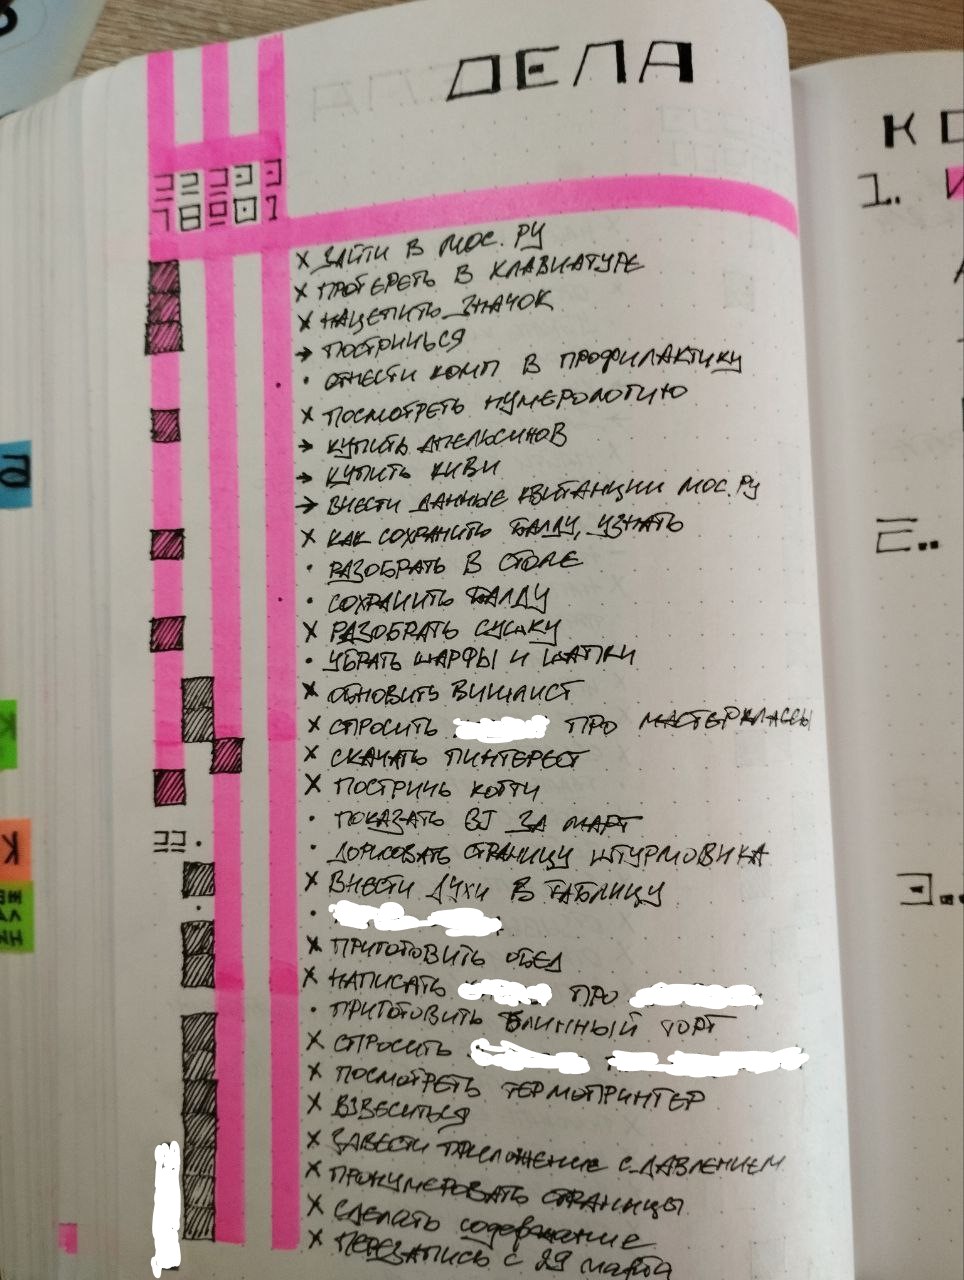 ДЕЛА
2 2 2 3 3
7 8 9 0 1
× ЗАЙТИ В МОС.РУ
× ПРОТЕРЕТЬ В КЛАВИАТУРЕ
× НАЦЕПИТЬ ЗНАЧОК
→ ПОСТРИЧЬСЯ
· ОТНЕСТИ КОМП В ПРОФИЛАКТИКУ
× ПОСМОТРЕТЬ НУМЕРОЛОГИЮ
→ КУПИТЬ АПЕЛЬСИНОВ
→ КУПИТЬ КИВИ
→ ВНЕСТИ ДАННЫЕ КВИТАНЦИИ МОС.РУ
× КАК СОХРАНИТЬ БАЛДУ, УЗНАТЬ
· РАЗОБРАТЬ В СТОЛЕ
· СОХРАНИТЬ БАЛДУ
× РАЗОБРАТЬ СУШКУ
· УБРАТЬ ШАРФЫ И ШАПКИ
× ОБНОВИТЬ ВИШЛИСТ
× СПРОСИТЬ ПРО МАСТЕРКЛАССЫ
× СКАЧАТЬ ПИНТЕРЕСТ
× ПОСТРИЧЬ КОГТИ
· ПОКАЗАТЬ BJ ЗА МАРТ
· ДОРИСОВАТЬ СТРАНИЦУ ШТУРМОВИКА
× ВНЕСТИ ДУХИ В ТАБЛИЦУ
·
× ПРИГОТОВИТЬ ОБЕД
× НАПИСАТЬ ПРО
· ПРИГОТОВИТЬ БЛИННЫЙ ТОРТ
× СПРОСИТЬ
× ПОСМОТРЕТЬ ТЕРМОПРИНТЕР
× ВЗВЕСИТЬСЯ
× ЗАВЕСТИ ПРИЛОЖЕНИЕ С ДАВЛЕНИЕМ
× ПРОНУМЕРОВАТЬ СТРАНИЦЫ
× СДЕЛАТЬ СОДЕРЖАНИЕ
× ПЕРЕЗАПИСЬ С 29 МАРТА
К
1..
2..
3..